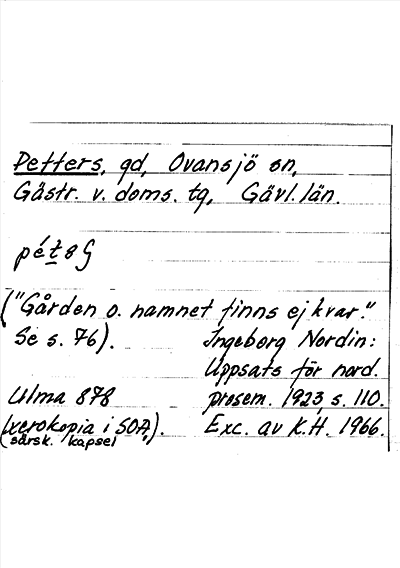 Petters, gd, Ovansjö sn,
Gästr. v. doms. tg, Gävl. län.
("Gården o. namnet finns ej kvar."
Se s. 76). Ingeborg Nordin:
Uppsats för nord.
Ulma 878 prosem. 1923, s. 110.
(xerokopia i SOA,). Exc. av K.H. 1966.
särsk. kapsel